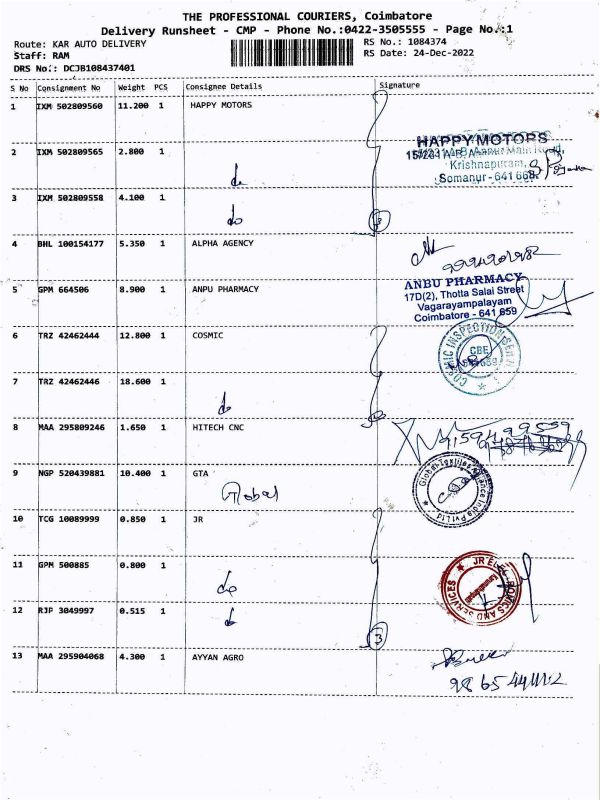 THE PROFESSIONAL COURIERS, Coimbatore
Delivery Runsheet - CMP - Phone No.:0422-3505555 - Page No.:1
Route: KAR AUTO DELIVERY
RS No.: 1084374
Staff: RAM
RS Date: 24-Dec-2022
DRS No.: DCJB108437401
S No Consignment No Weight PCS Consignee Details Signature
1 IXM 502809560 11.200 1 HAPPY MOTORS
HAPPY MOTORS
2 IXM 502809565 2.800 1
Krishnapuram,
Somanur - 641 668.
do
3 IXM 502809558 4.100 1
do
3
4 BHL 100154177 5.350 1 ALPHA AGENCY
5 GPM 664506 8.900 1 ANPU PHARMACY
ANBU PHARMACY
17D(2), Thotta Salai Street
Vagarayampalayam
Coimbatore - 641 659
6 TRZ 42462444 12.800 1 COSMIC
CBE
7 TRZ 42462446 18.600 1
do
8 MAA 295809246 1.650 1 HITECH CNC
9 NGP 520439881 10.400 1 GTA
Global
10 TCG 10089999 0.850 1 JR
11 GPM 500885 0.800 1
do
12 RJP 3049997 0.515 1
do
3
13 MAA 295904068 4.300 1 AYYAN AGRO